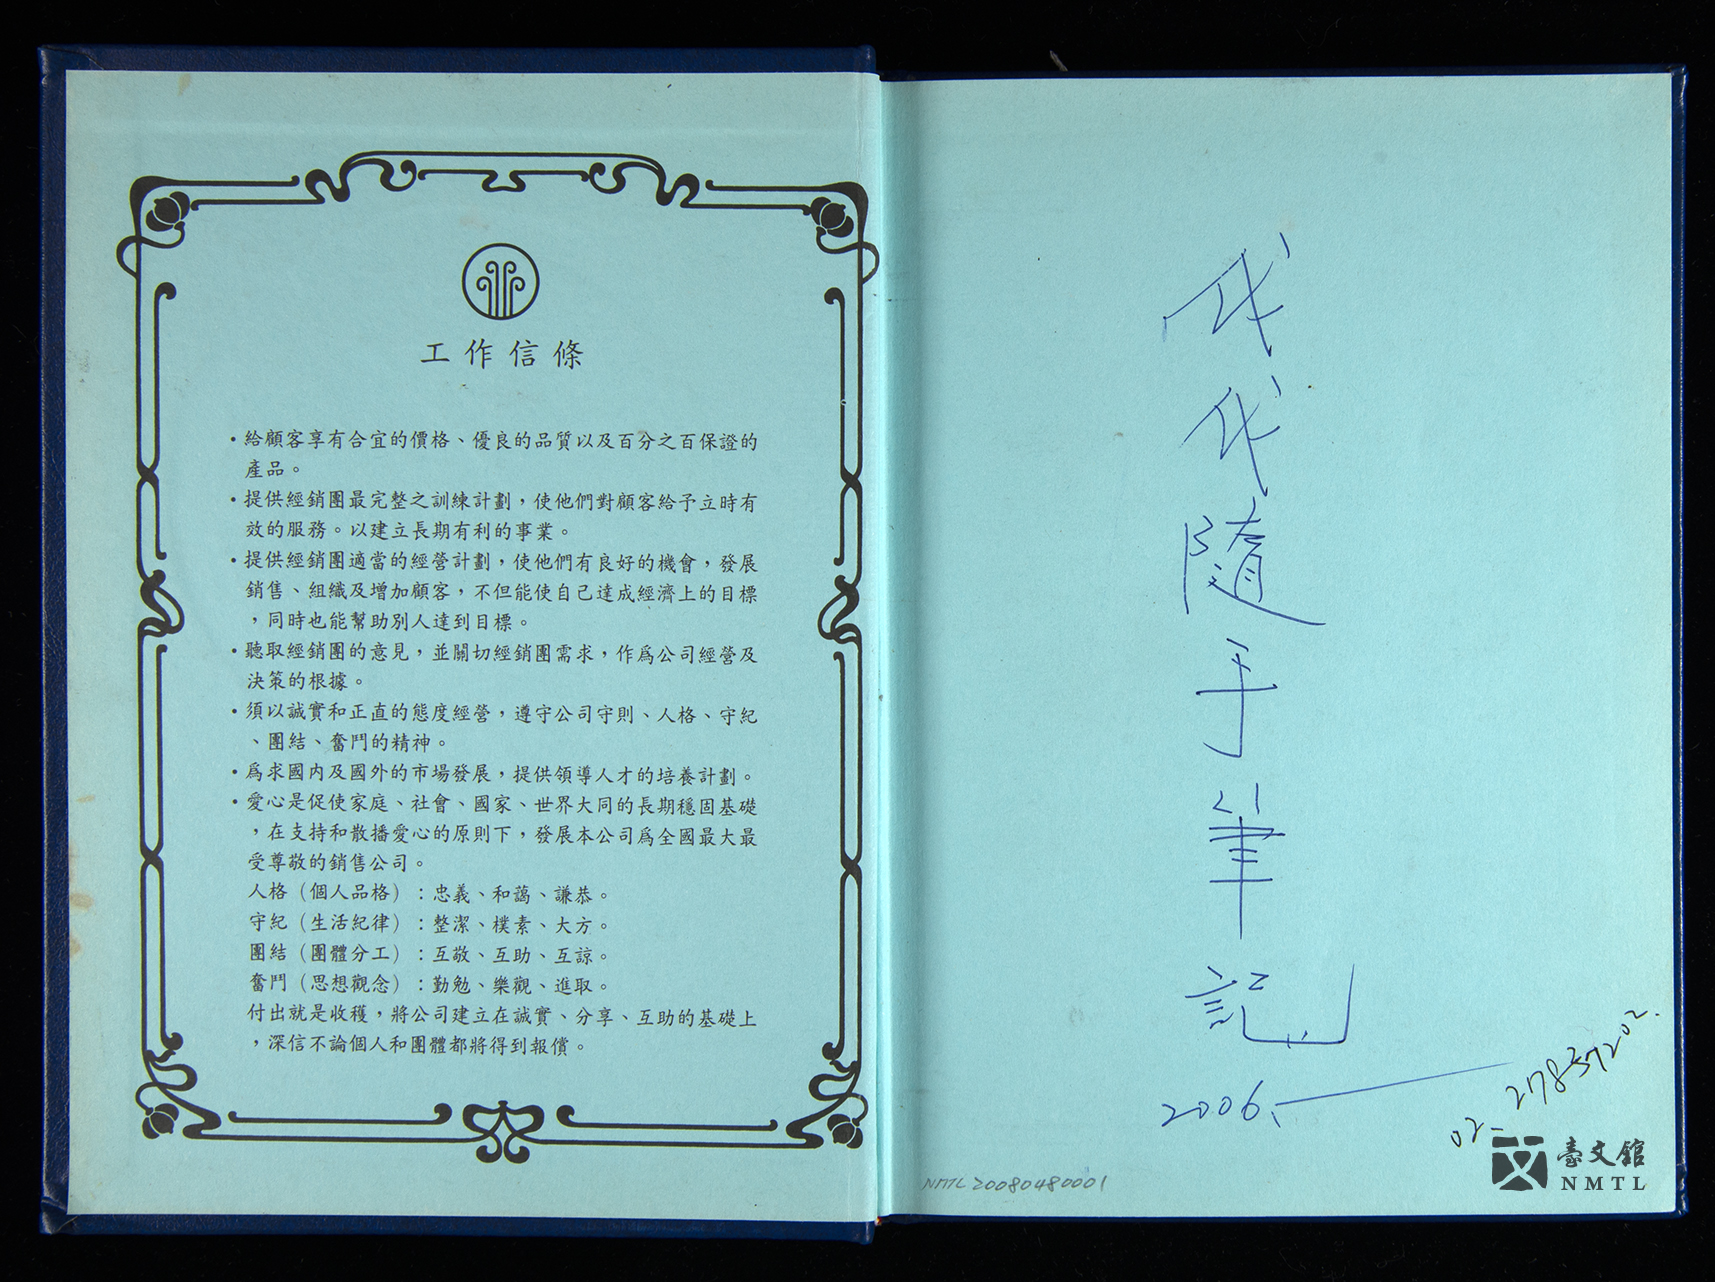 工作信條
・給顧客享有合宜的價格、優良的品質以及百分之百保證的
產品。
・提供經銷團最完整之訓練計劃，使他們對顧客給予立時有
效的服務。以建立長期有利的事業。
・提供經銷團適當的經營計劃，使他們有良好的機會，發展
銷售、組織及增加顧客，不但能使自己達成經濟上的目標
，同時也能幫助別人達到目標。
・聽取經銷團的意見，並關切經銷團需求，作爲公司經營及
決策的根據。
・須以誠實和正直的態度經營，遵守公司守則、人格、守紀
、團結、奮鬥的精神。
・爲求國內及國外的市場發展，提供領導人才的培養計劃。
・愛心是促使家庭、社會、國家、世界大同的長期穩固基礎
，在支持和散播愛心的原則下，發展本公司爲全國最大最
受尊敬的銷售公司。
人格（個人品格）：忠義、和藹、謙恭。
守紀（生活紀律）：整潔、樸素、大方。
團結（團體分工）：互敬、互助、互諒。
奮鬥（思想觀念）：勤勉、樂觀、進取。
付出就是收穫，將公司建立在誠實、分享、互助的基礎上
，深信不論個人和團體都將得到報償。
代代隨手筆記
2006、
NMTL20080480001
臺文館
NMTL